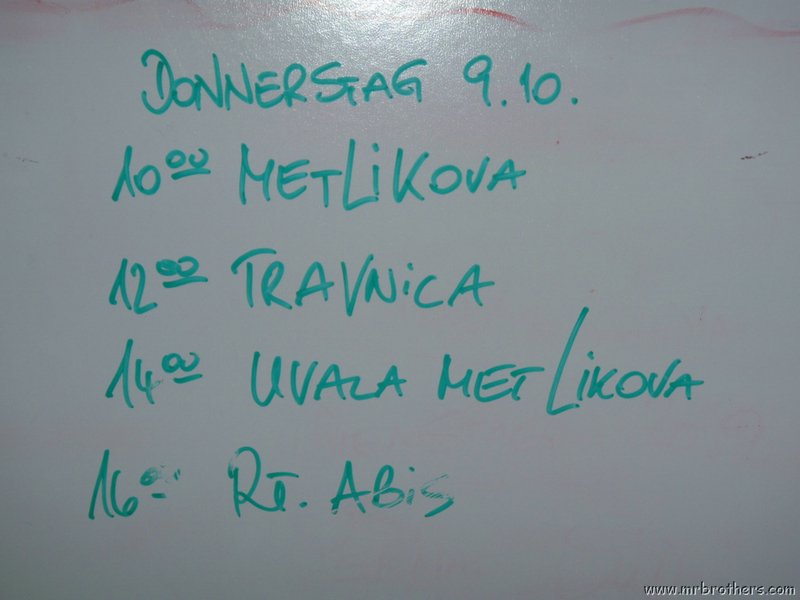 DONNERSTAG 9.10.
10⁰⁰ METLIKOVA
12⁰⁰ TRAVNICA
14⁰⁰ UVALA METLIKOVA
16⁰⁰ RT. ABIS
www.mrbrothers.com